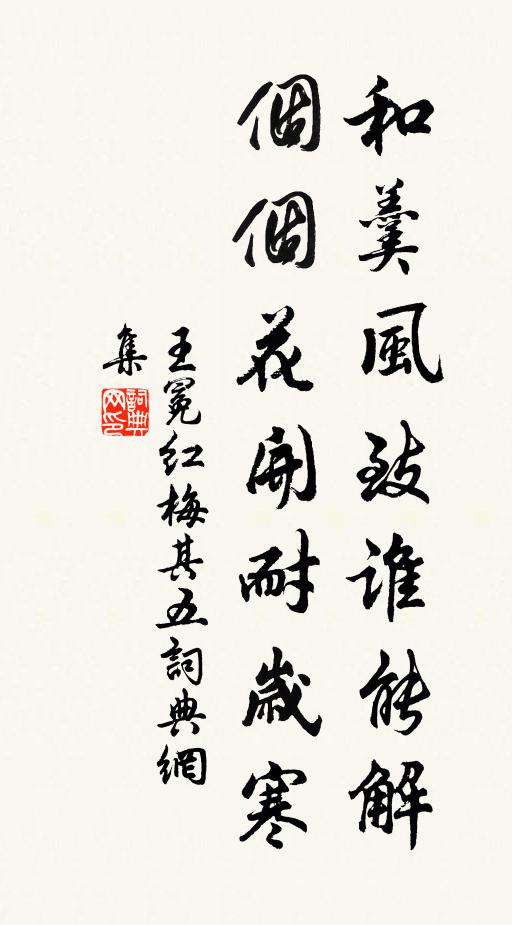 和羹風致誰能解
個個花開耐歲寒
王冕紅梅其五詞典網
集
詞典
网印